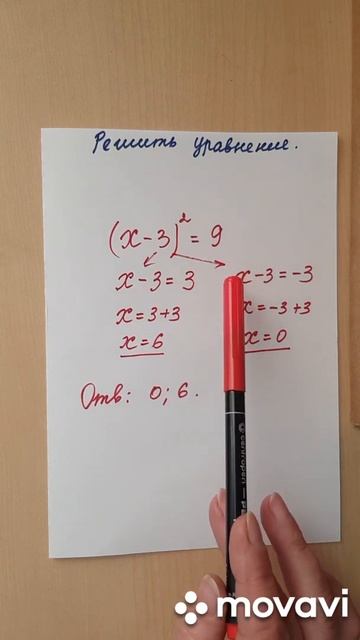 Решить уравнение.
(x-3)² = 9
x-3 = 3
x-3 = -3
x = 3+3
x = -3+3
x = 6
x = 0
Отв: 0; 6.
centropen
movavi